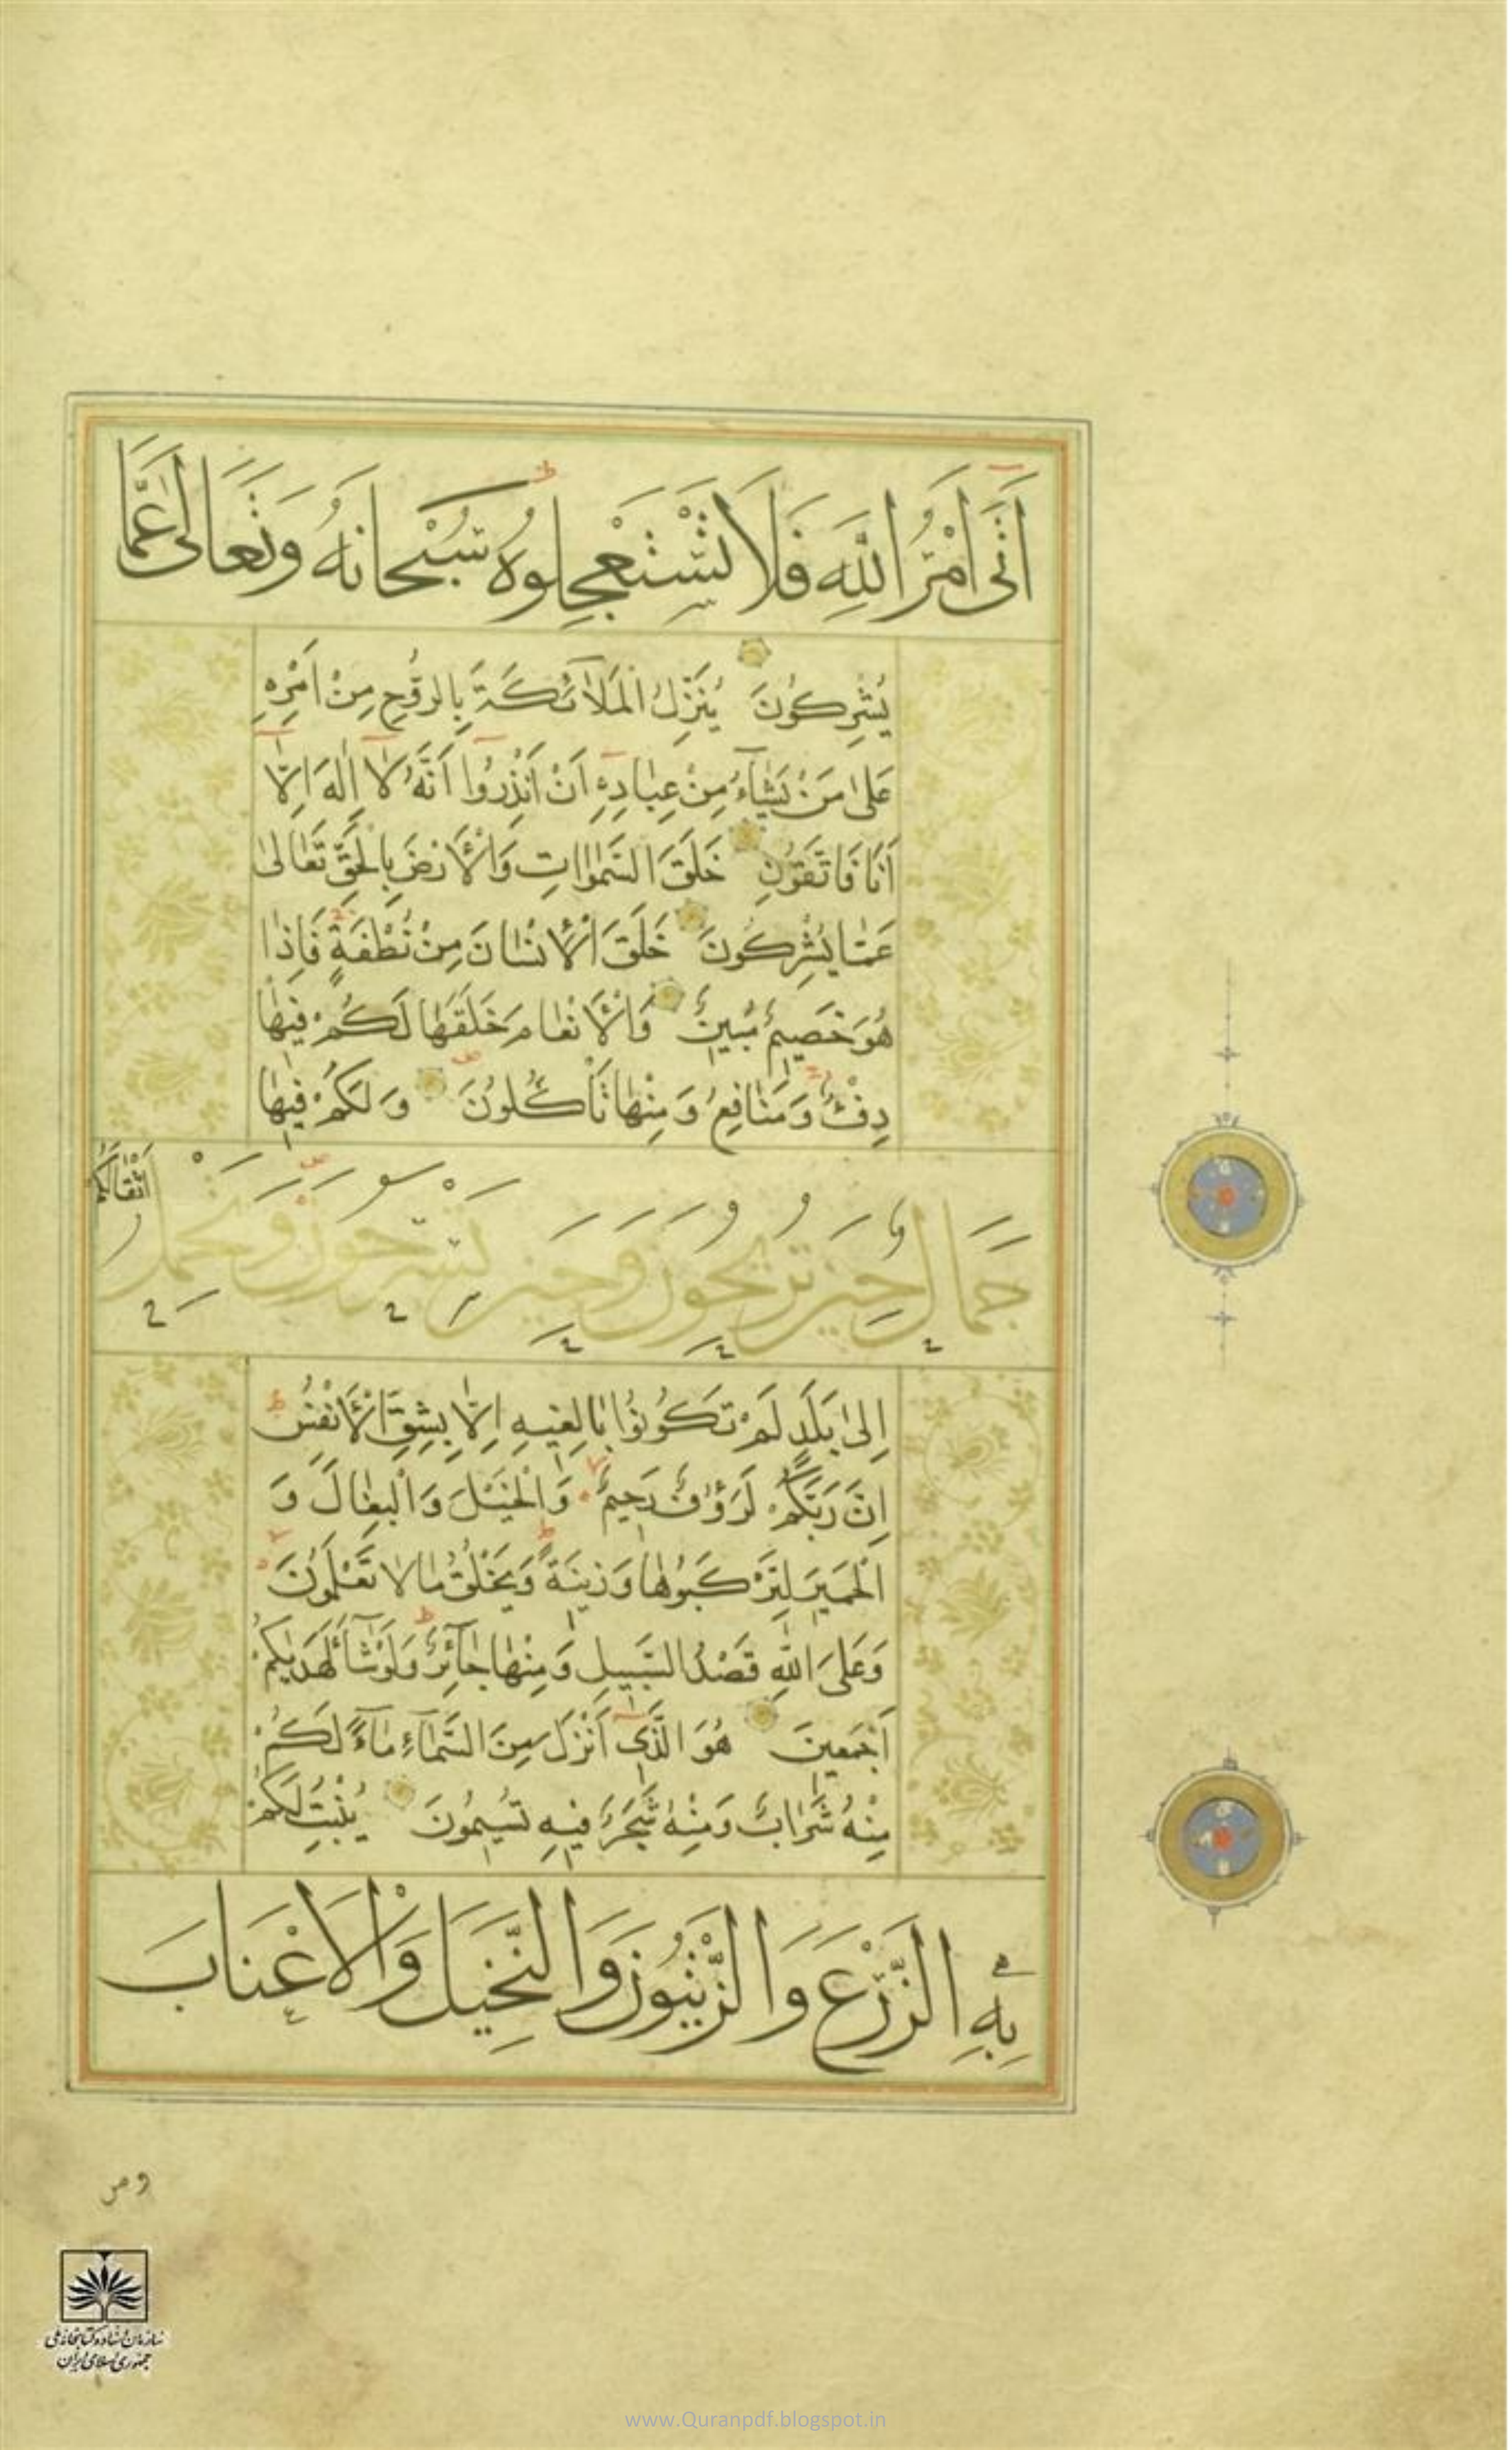 اَتٰى اَمْرُ اللّٰهِ فَلَا تَسْتَعْجِلُوهُ سُبْحَانَهُ وَتَعَالٰى عَمَّا
يُشْرِكُونَ يُنَزِّلُ الْمَلَآئِكَةَ بِالرُّوحِ مِنْ اَمْرِهِ
عَلٰى مَنْ يَشَآءُ مِنْ عِبَادِهِ اَنْ اَنْذِرُوا اَنَّهُ لَآ اِلٰهَ اِلَّا
اَنَا فَاتَّقُونِ خَلَقَ السَّمٰوَاتِ وَالْاَرْضَ بِالْحَقِّ تَعَالٰى
عَمَّا يُشْرِكُونَ خَلَقَ الْاِنْسَانَ مِنْ نُطْفَةٍ فَاِذَا
هُوَ خَصِيمٌ مُبِينٌ وَالْاَنْعَامَ خَلَقَهَا لَكُمْ فِيهَا
دِفْءٌ وَمَنَافِعُ وَمِنْهَا تَأْكُلُونَ وَلَكُمْ فِيهَا
جَمَالٌ حِينَ تُرِيحُونَ وَحِينَ تَسْرَحُونَ وَتَحْمِلُ اَثْقَالَكُمْ
اِلٰى بَلَدٍ لَمْ تَكُونُوا بَالِغِيهِ اِلَّا بِشِقِّ الْاَنْفُسِ
اِنَّ رَبَّكُمْ لَرَؤُفٌ رَحِيمٌ وَالْخَيْلَ وَالْبِغَالَ وَ
الْحَمِيرَ لِتَرْكَبُوهَا وَزِينَةً وَيَخْلُقُ مَا لَا تَعْلَمُونَ
وَعَلَى اللّٰهِ قَصْدُ السَّبِيلِ وَمِنْهَا جَآئِرٌ وَلَوْ شَآءَ لَهَدٰيكُمْ
اَجْمَعِينَ هُوَ الَّذِى اَنْزَلَ مِنَ السَّمَآءِ مَآءً لَكُمْ
مِنْهُ شَرَابٌ وَمِنْهُ شَجَرٌ فِيهِ تُسِيمُونَ يُنْبِتُ لَكُمْ
بِهِ الزَّرْعَ وَالزَّيْتُونَ وَالنَّخِيلَ وَالْاَعْنَابَ
ومن
سازمان اسناد و کتابخانه ملی
جمهوری اسلامی ایران
www.Quranpdf.blogspot.in